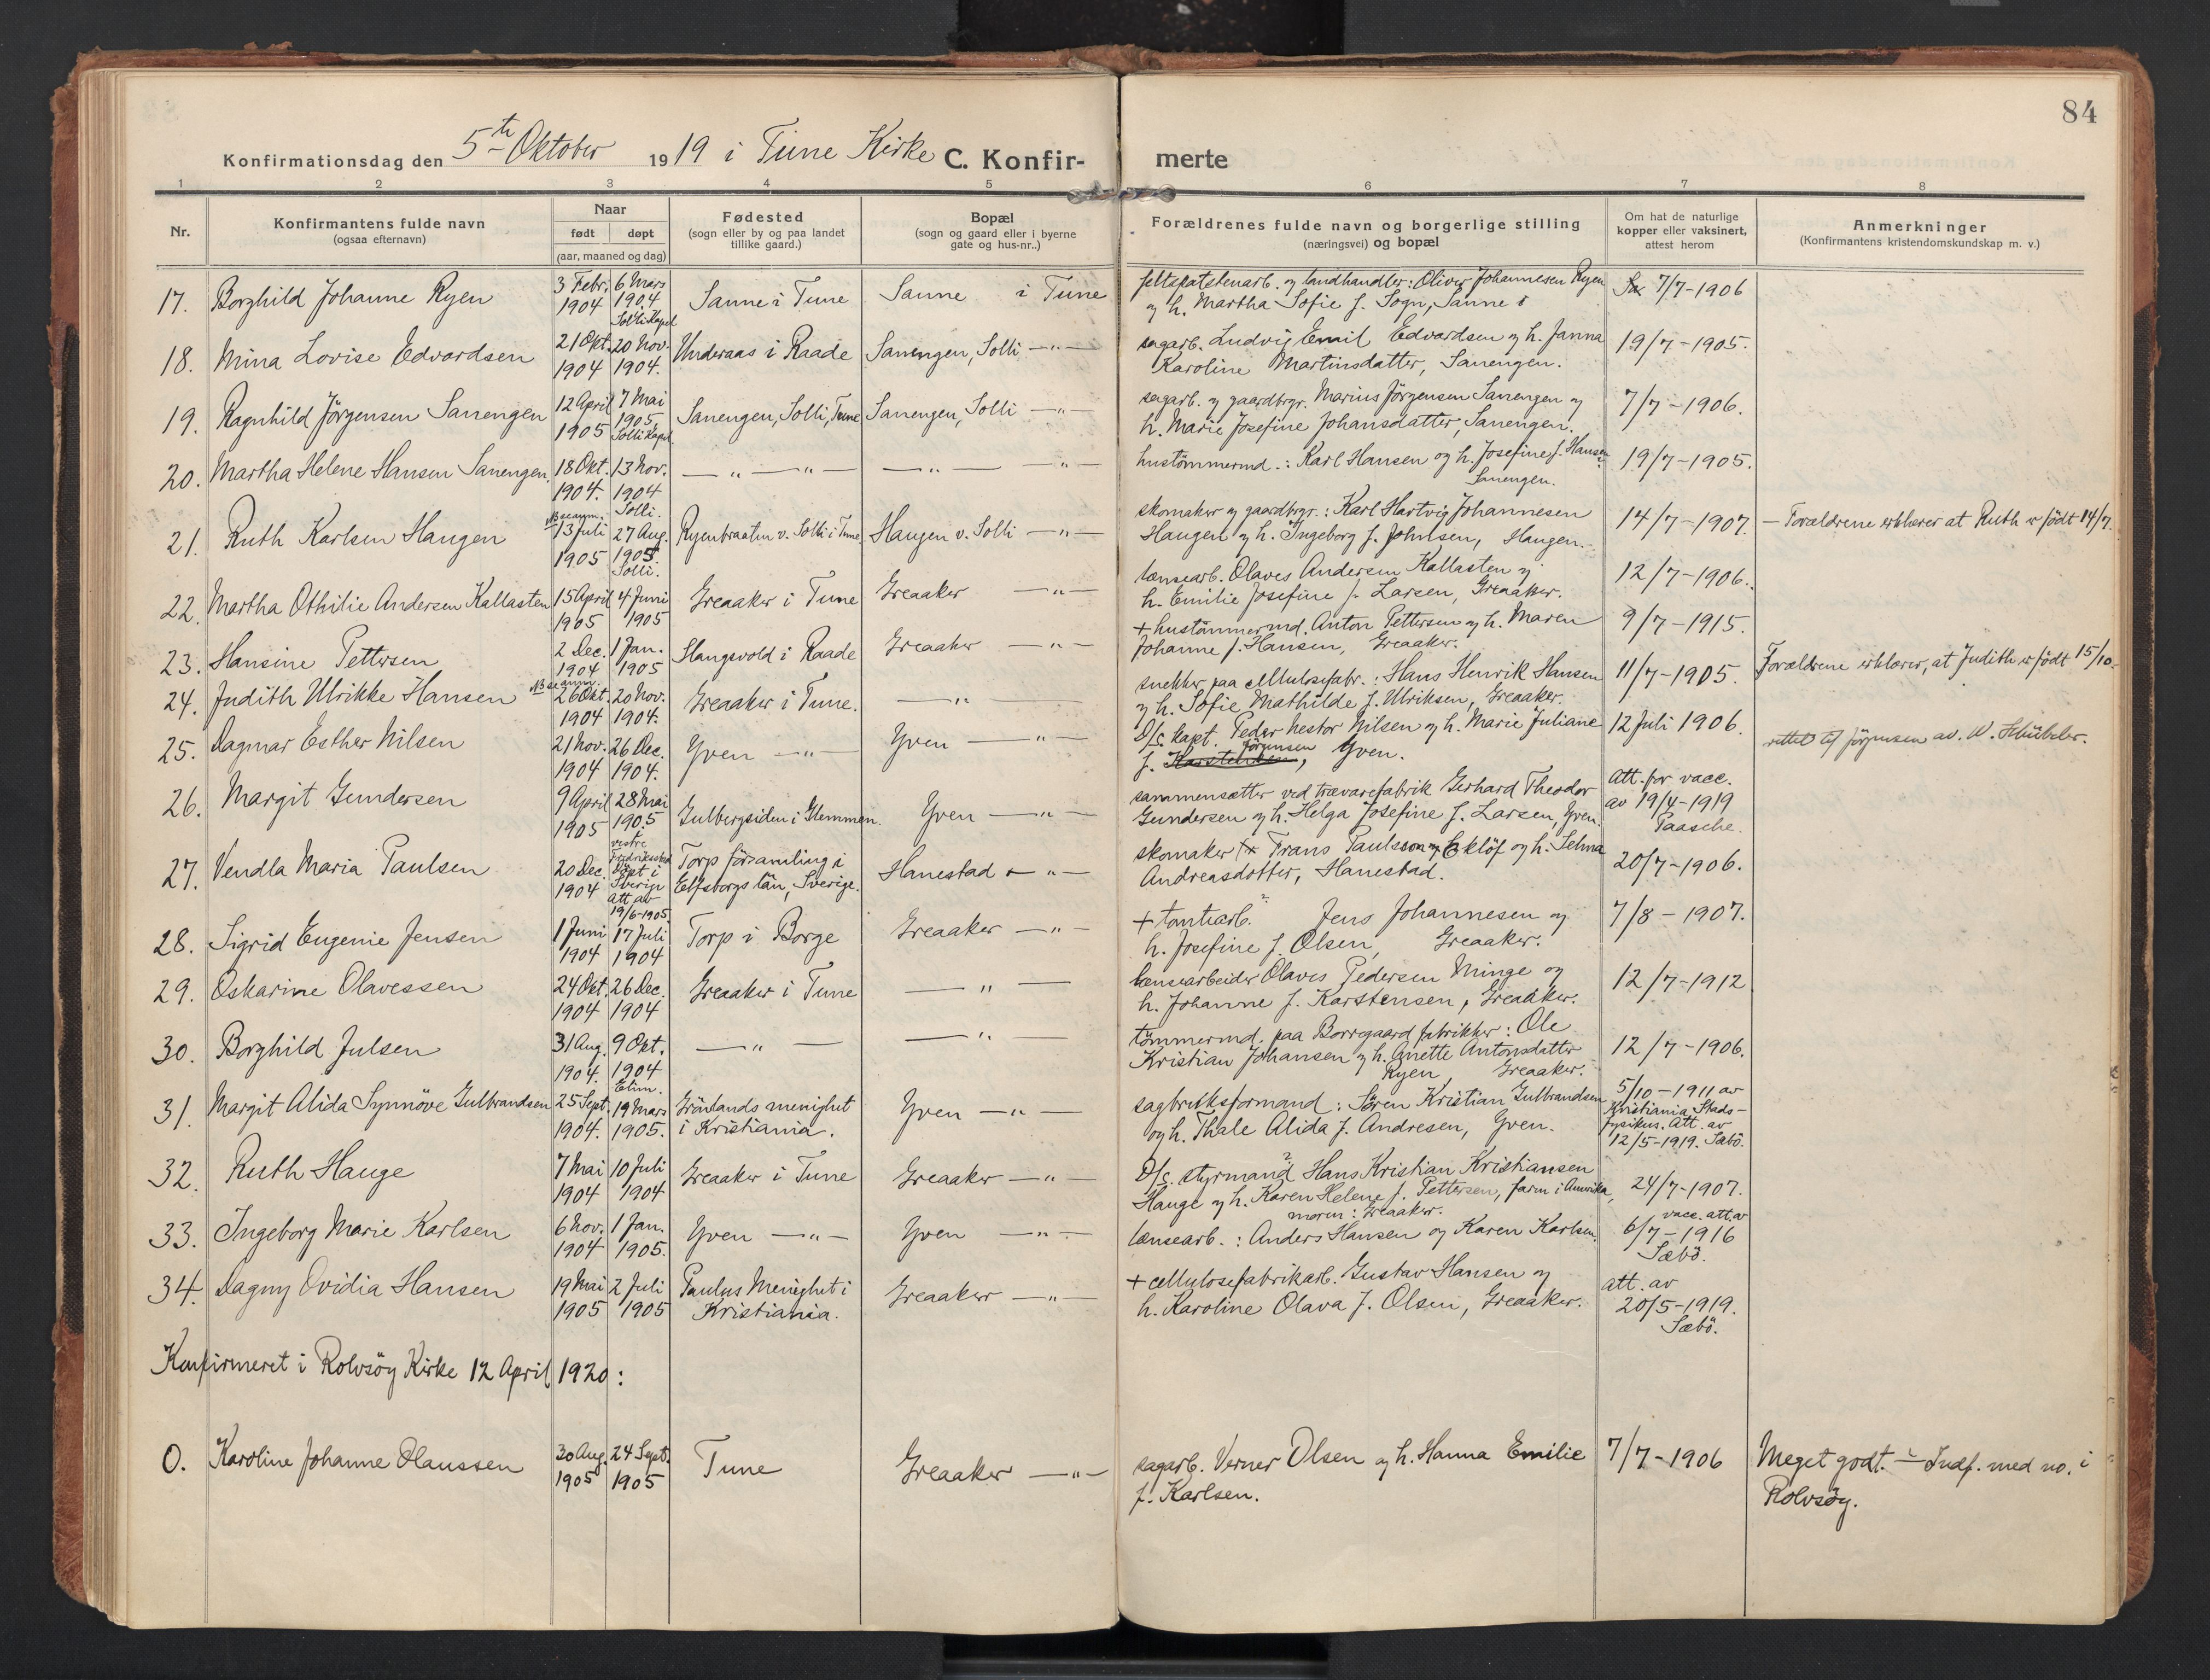 84
Konfirmationsdag den 5te Oktober 1919 i Tune Kirke C. Konfir- merte
1 2 3 4 5 6 7 8
Nr.
Konfirmantens fulde navn
(ogsaa efternavn)
Naar
født døpt
(aar, maaned og dag)
Fødested
(sogn eller by og paa landet
tillike gaard.)
Bopæl
(sogn og gaard eller i byerne
gate og hus-nr..)
Forældrenes fulde navn og borgerlige stilling
(næringsvei) og bopæl
Om hat de naturlige
kopper eller vaksinert,
attest herom
Anmerkninger
(Konfirmantens kristendomskundskap m. v.)
17. Borghild Johanne Ryen 3 Febr. 6 Mars Sanne i Tune Sanne i Tune feltspatstenarb. og landhandler: Oliver Johannesen Ryen 7/7-1906
1904 1904 og h. Martha Sofie f. Sogn, Sanne
Solli Kapel
18. Mina Lovise Edvardsen 21 Okt. 20 Nov. Underaas i Raade Sanengen, Solli —"— sagarb. Ludvig Emil Edvardsen og h. Janna 19/7-1905.
1904 1904. Karoline Martinsdatter, Sanengen.
19. Ragnhild Jörgensen Sanengen 12 April 7 Mai Sanengen, Solli, Tune Sanengen, Solli —"— sagarb. og gaardbrgr. Marius Jörgensen Sanengen og 7/7-1906.
1905 1905, h. Marie Josefine Johansdatter, Sanengen.
Solli Kapel.
20. Martha Helene Hansen Sanengen. 18 Okt. 13 Nov. —"— —"— —"— —"— hustömmermd.: Karl Hansen og h. Josefine f. Hansen 19/7-1905.
1904. 1904 Sanengen.
Solli.
21. Ruth Karlsen Haugen NB seanm. 13 Juli 27 Aug. Ryenbraaten v. Solli i Tune Haugen v. Solli —"— skomaker og gaardbrgr.: Karl Hartvig Johannesen 14/7-1907. — Forældrene erklærer at Ruth er født 14/7.
1905 1905 Haugen og h. Ingeborg f. Johnsen, Haugen.
Solli.
22. Martha Othilie Andersen Kallasten 15 April 4 Juni Greaaker i Tune Greaaker —"— lænsearb. Olaves Andersen Kallasten og 12/7-1906.
1905 1905 h. Emilie Josefine f. Larsen, Greaaker.
23. Hansine Pettersen 2 Dec. 1 Jan. Haugsvold i Raade Greaaker —"— + hustömmermd. Anton Pettersen og h. Maren 9/7-1915.
1904 1905 Johanne f. Hansen, Greaaker.
24. Judith Ulrikke Hansen NB seanm. 26 Okt. 20 Nov. Greaaker i Tune. —"— snekker paa cellulosefabr.: Hans Henrik Hansen 11/7-1905. Forældrene erklærer, at Judith er født 15/10.
1904 1904. og h. Sofie Mathilde f. Ulriksen, Greaaker.
25. Dagmar Esther Nilsen 21 Nov. 26 Dec. Yven —"— Yven —"— D/S. kapt. Peder Nestor Nilsen og h. Marie Juliane 12 Juli 1906. rettet til Jörgensen av. W. Schübeler.
1904 1904. f. Karstensen Jörgensen, Yven.
26. Margit Gundersen 9 April 28 Mai Gulbergsiden i Glemmen. Yven —"— sammensætter ved trævarefabrik Gerhard Theodor Att. for vacc.
1905 1905 Gundersen og h. Helga Josefine f. Larsen, Yven. av 19/4-1919
vestre Fredriksstad Paasche.
27. Vendla Maria Paulsen 20 Dec. Døpt i Torp församling i Hanestad —"— skomaker Frans Paulsson Eklöf og h. Selma 20/7-1906.
1904 Sverige Elfsborgs län, Sverige. Andreasdotter, Hanestad.
att av
19/6-1905.
28. Sigrid Eugenie Jensen 1 Juni 17 Juli Torp i Borge Greaaker —"— + tomtearb.? Jens Johannesen og 7/8-1907.
1904 1904 h. Josefine f. Olsen, Greaaker.
29. Oskarine Olavessen 24 Okt. 26 Dec. Greaaker i Tune —"— lænsearbeider Olaves Pedersen Minge og 12/7-1912
1904 1904 h. Johanne f. Karstensen, Greaaker.
30. Borghild Julsen 31 Aug. 9 Okt. —"— —"— tömmermd. paa Borregaard fabrikker: Ole 12/7-1906.
1904. 1904 Kristian Johansen og h. Anette Antonsdatter
Elim. Ryen Greaaker.
31. Margit Alida Synnöve Gulbrandsen 25 Sept. 19 Mars Grönlands menighet Yven —"— sagbruksformand: Sören Kristian Gulbrandsen 5/10-1911 av
1904. 1905. i Kristiania. og h. Thale Alida f. Andresen, Yven. Kristiania Stads-
fysikus. Att. av
12/5-1919. Sæbö.
32. Ruth Hauge 7 Mai 10 Juli Greaaker i Tune Greaaker —"— D/S. styrmand? Hans Kristian Kristiansen 24/7-1907.
1904 1904 Hauge og h. Karen Helene f. Pettersen, faren i Amerika,
moren: Greaaker.
33. Ingeborg Marie Karlsen 6 Nov. 1 Jan. Yven —"— Yven —"— lænsearb.: Anders Hansen og Karen Karlsen. vacc. att. av
1904 1905. 6/7-1916
Sæbö.
34. Dagny Ovidia Hansen 19 Mai 2 Juli Paulus Menighet i Greaaker —"— + cellulosefabrikarb. Gustav Hansen og att. av
1905 1905 Kristiania. h. Karoline Olava f. Olsen, Greaaker. 20/5-1919.
Sæbö.
Konfirmeret i Rolvsöy Kirke 12 April 1920:
O. Karoline Johanne Olaussen 30 Aug. 24 Sept. Tune Greaaker —"— sagarb. Verner Olsen og h. Hanna Emilie 7/7-1906 Meget godt. — Indf. med no. i
1905 1905 f. Karlsen. Rolvsöy.